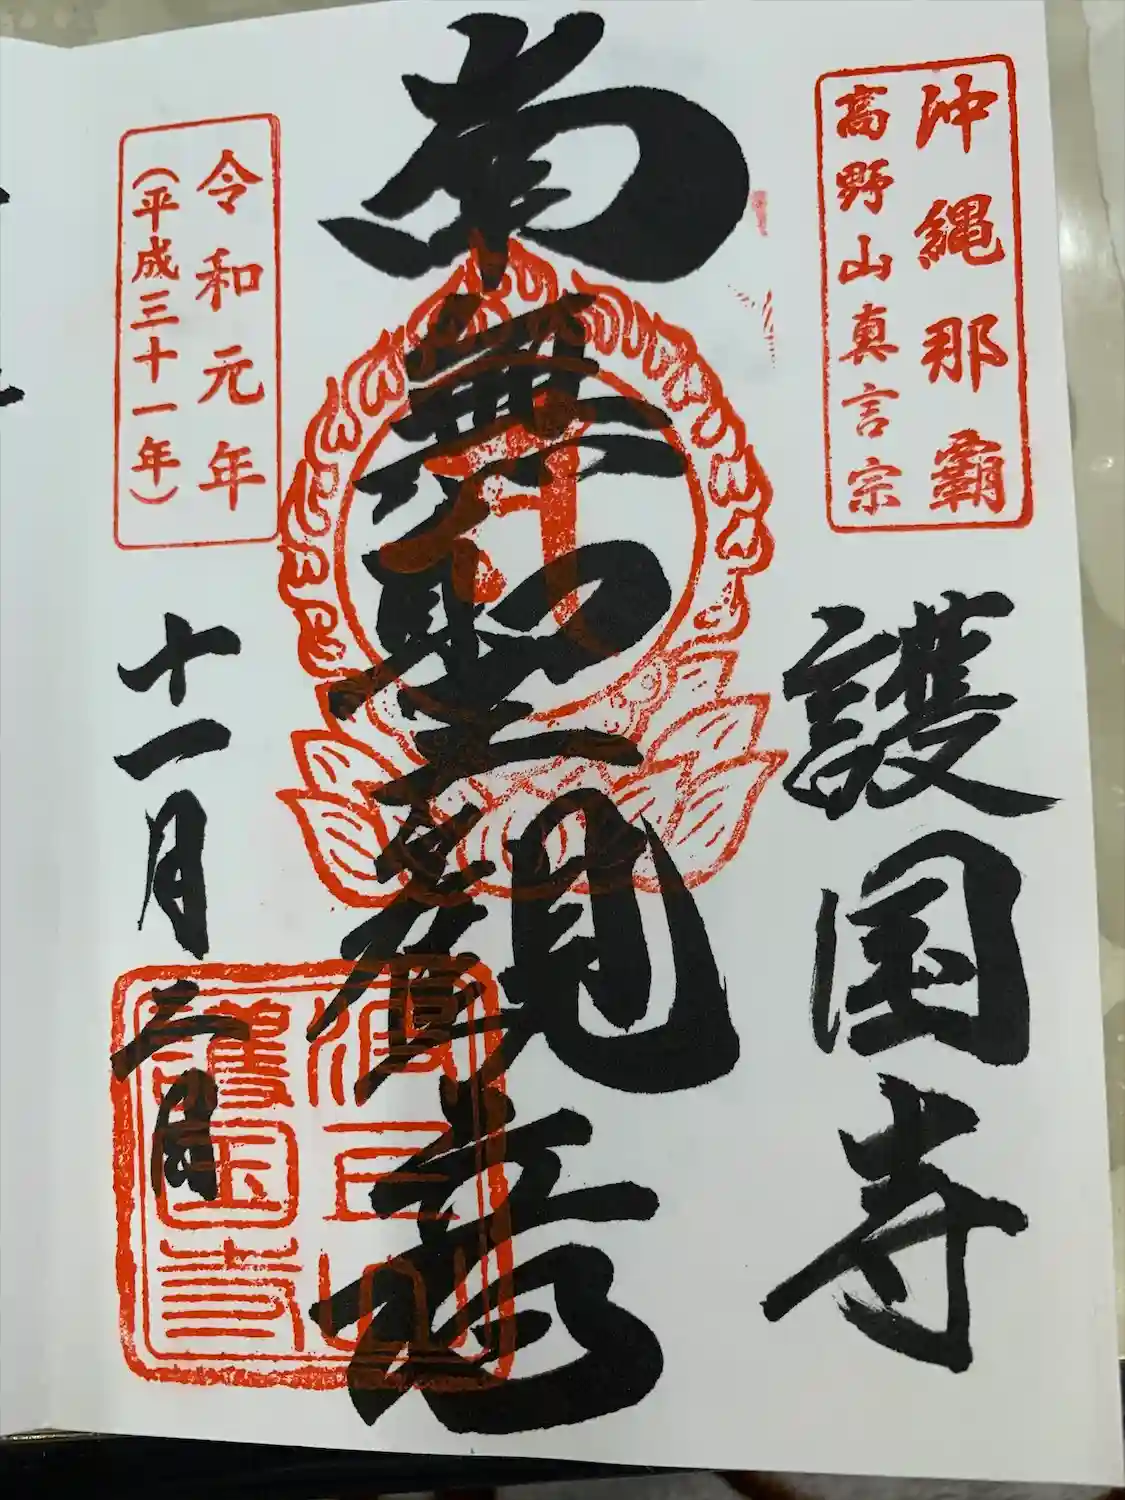 沖縄那覇
高野山真言宗
護国寺
南無聖観音
令和元年
（平成三十一年）
十一月三日
波上山
護国寺